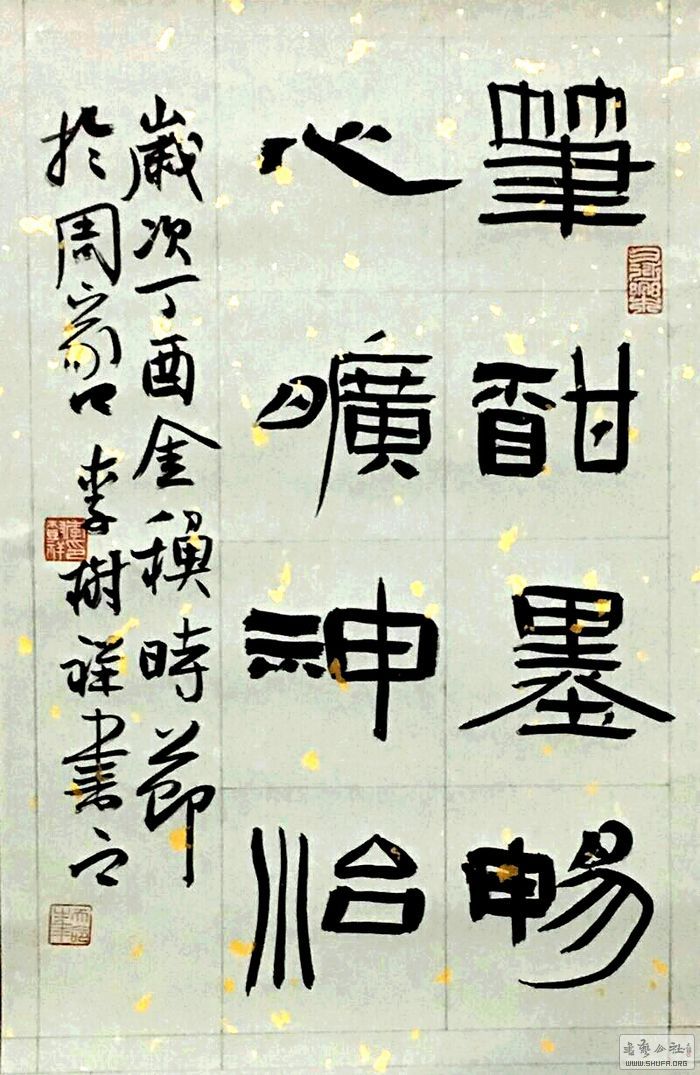 筆酣墨暢
心曠神怡
歲次丁酉金秋時節
於周家口李樹祥書之
書藝公社
WWW.SHUFA.ORG